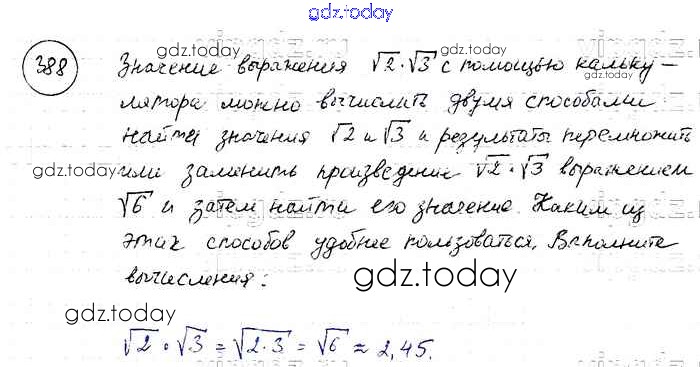 gdz.today
388 Значение выражения √2·√3 с помощью кальку-
gdz.today gdz.today
лятора можно вычислить двумя способами
найти значения √2 и √3 и результаты перемножить
gdz.today или заменить произведение √2·√3 выражением
√6 и затем найти его значение. Каким из
этих способов удобнее пользоваться. Выполните
вычисления:
gdz.today
gdz.today
√2 · √3 = √2·3 = √6 ≈ 2,45.